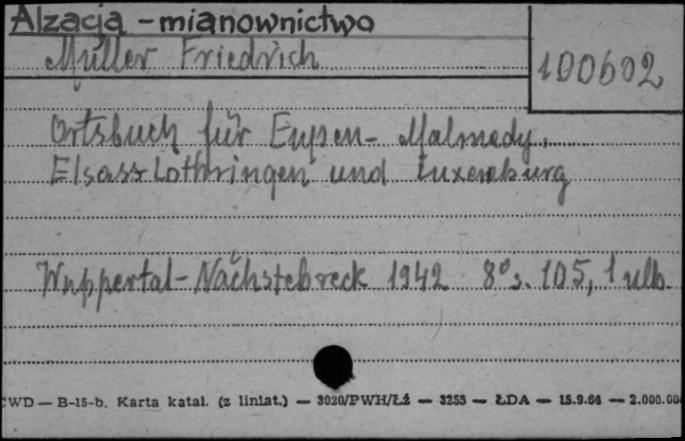 Alzacja - mianownictwo
Müller Friedrich
100602
Ortsbuch für Eupen-Malmedy,
Elsass Lothringen und Luxemburg
Wuppertal-Nächstebreck 1942 8° s. 105, 1 ulb.
CWD — B-15-b. Karta katal. (z liniat.) — 3020/PWH/Łź — 3255 — ŁDA — 15.9.64 — 2.000.00